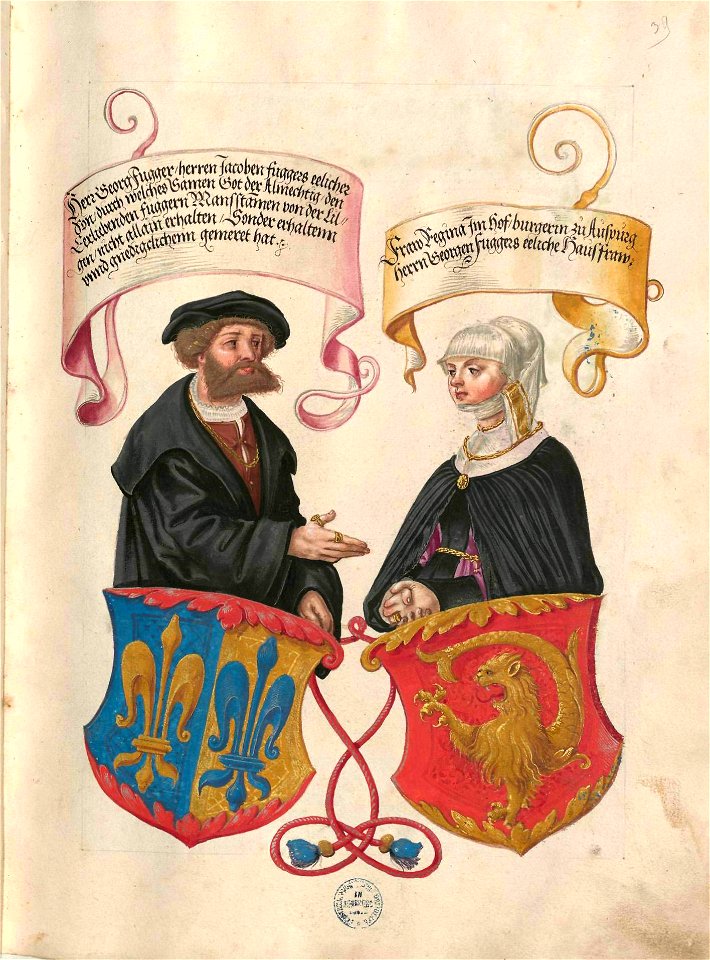 39
Herr Georg Fugger, herren Jacoben fuggers eelicher
Son, durch welches Namen Got der Almechtig den
Eerliebenden fuggern Mansstamen von der Lil-
gen nicht allain erhalten, Sonder erhaltenn
vnnd gnedigclichenn gemeret hat.
Fraw Regina Im Hof burgerin zu Auspurg
herrn Georgen Fuggers eeliche Hausfraw,